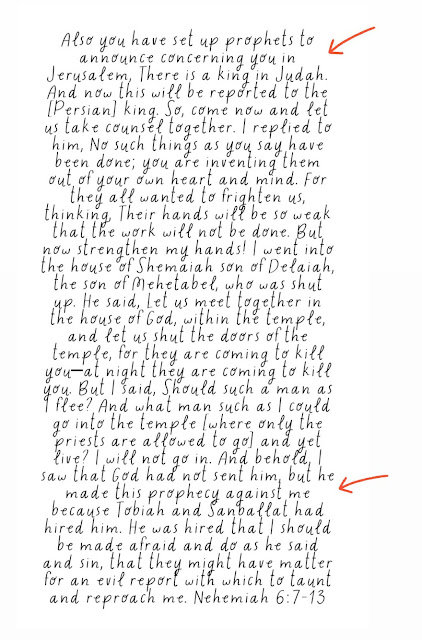 Also you have set up prophets to
announce concerning you in
Jerusalem, There is a king in Judah.
And now this will be reported to the
[Persian] king. So, come now and let
us take counsel together. I replied to
him, No such things as you say have
been done; you are inventing them
out of your own heart and mind. For
they all wanted to frighten us,
thinking, Their hands will be so weak
that the work will not be done. But
now strengthen my hands! I went into
the house of Shemaiah son of Delaiah,
the son of Mehetabel, who was shut
up. He said, Let us meet together in
the house of God, within the temple,
and let us shut the doors of the
temple, for they are coming to kill
you—at night they are coming to kill
you. But I said, Should such a man as
I flee? And what man such as I could
go into the temple [where only the
priests are allowed to go] and yet
live? I will not go in. And behold, I
saw that God had not sent him, but he
made this prophecy against me
because Tobiah and Sanballat had
hired him. He was hired that I should
be made afraid and do as he said
and sin, that they might have matter
for an evil report with which to taunt
and reproach me. Nehemiah 6:7-13